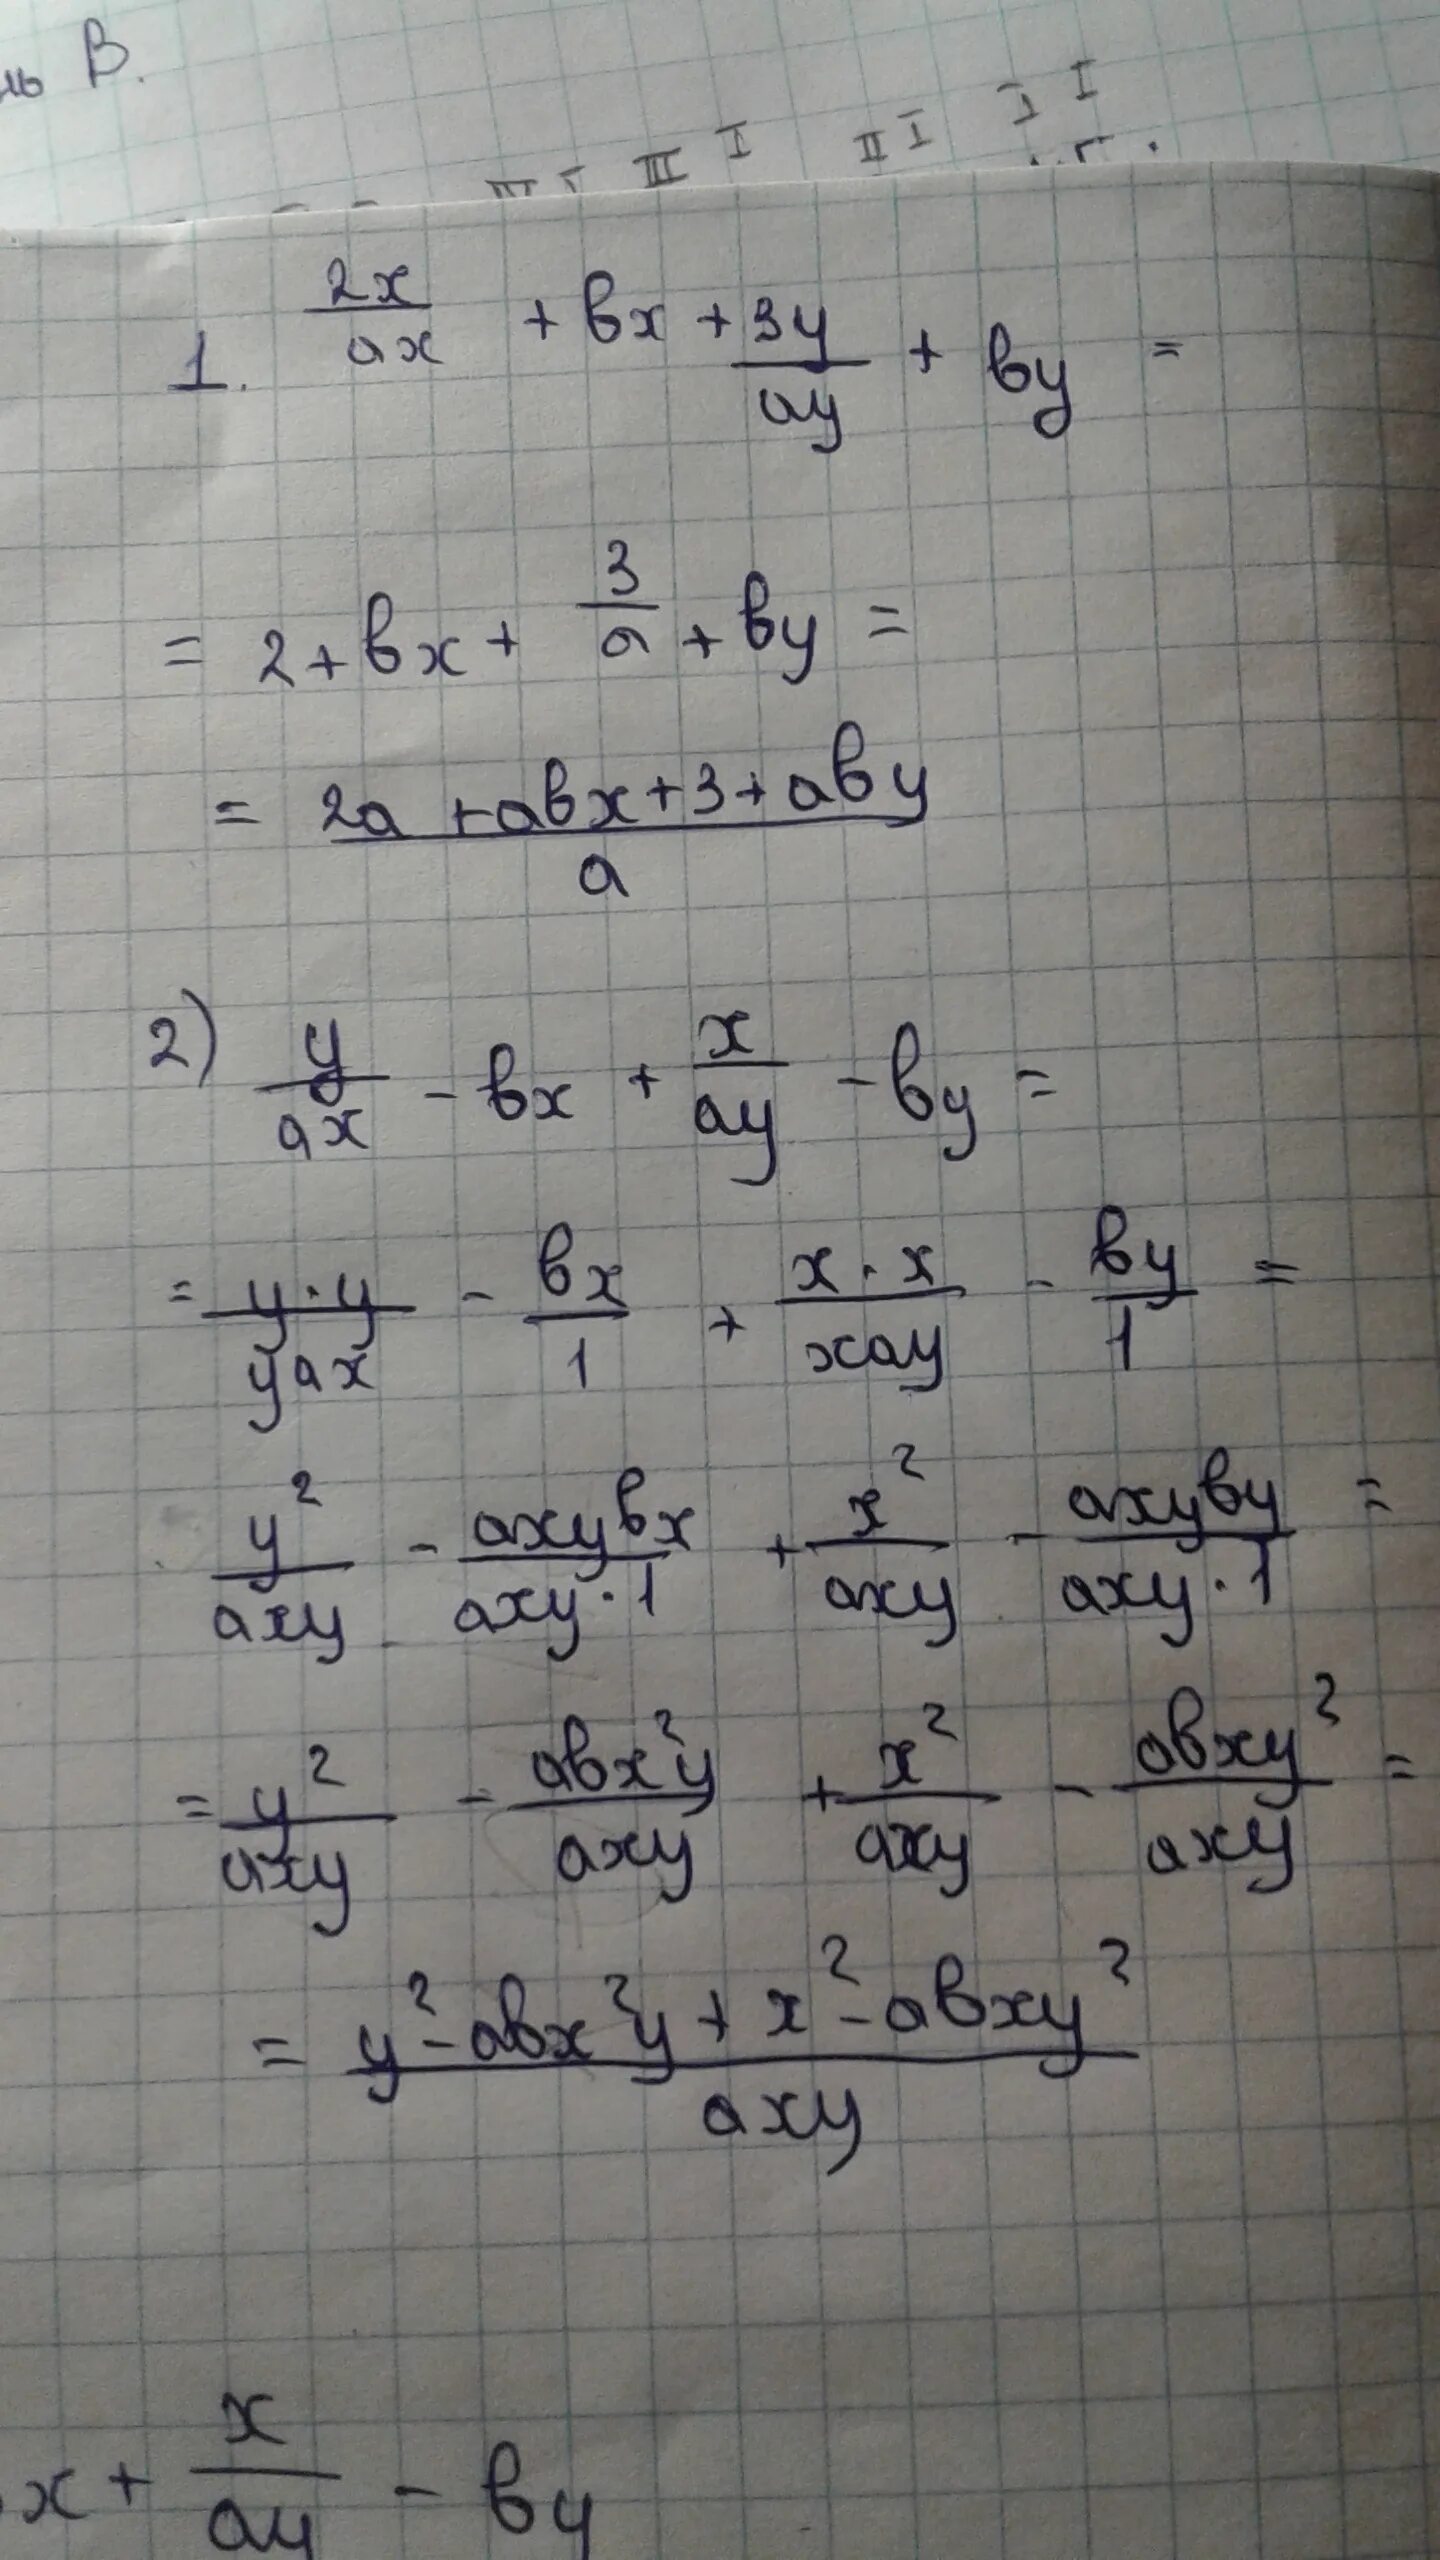 ль В.
III I II I I I
1. 2x/ax + вx + 3y/ay + вy =
= 2 + вx + 3/a + вy =
= (2a + aвx + 3 + aвy)/a
2) y/ax - вx + x/ay - вy =
= y·y/yax - вx/1 + x·x/xay - вy/1 =
y²/axy - axyвx/axy·1 + x²/axy - axyвy/axy·1 =
= y²/axy - aвx²y/axy + x²/axy - aвxy²/axy =
= (y² - aвx²y + x² - aвxy²)/axy
x + x/ay - вy